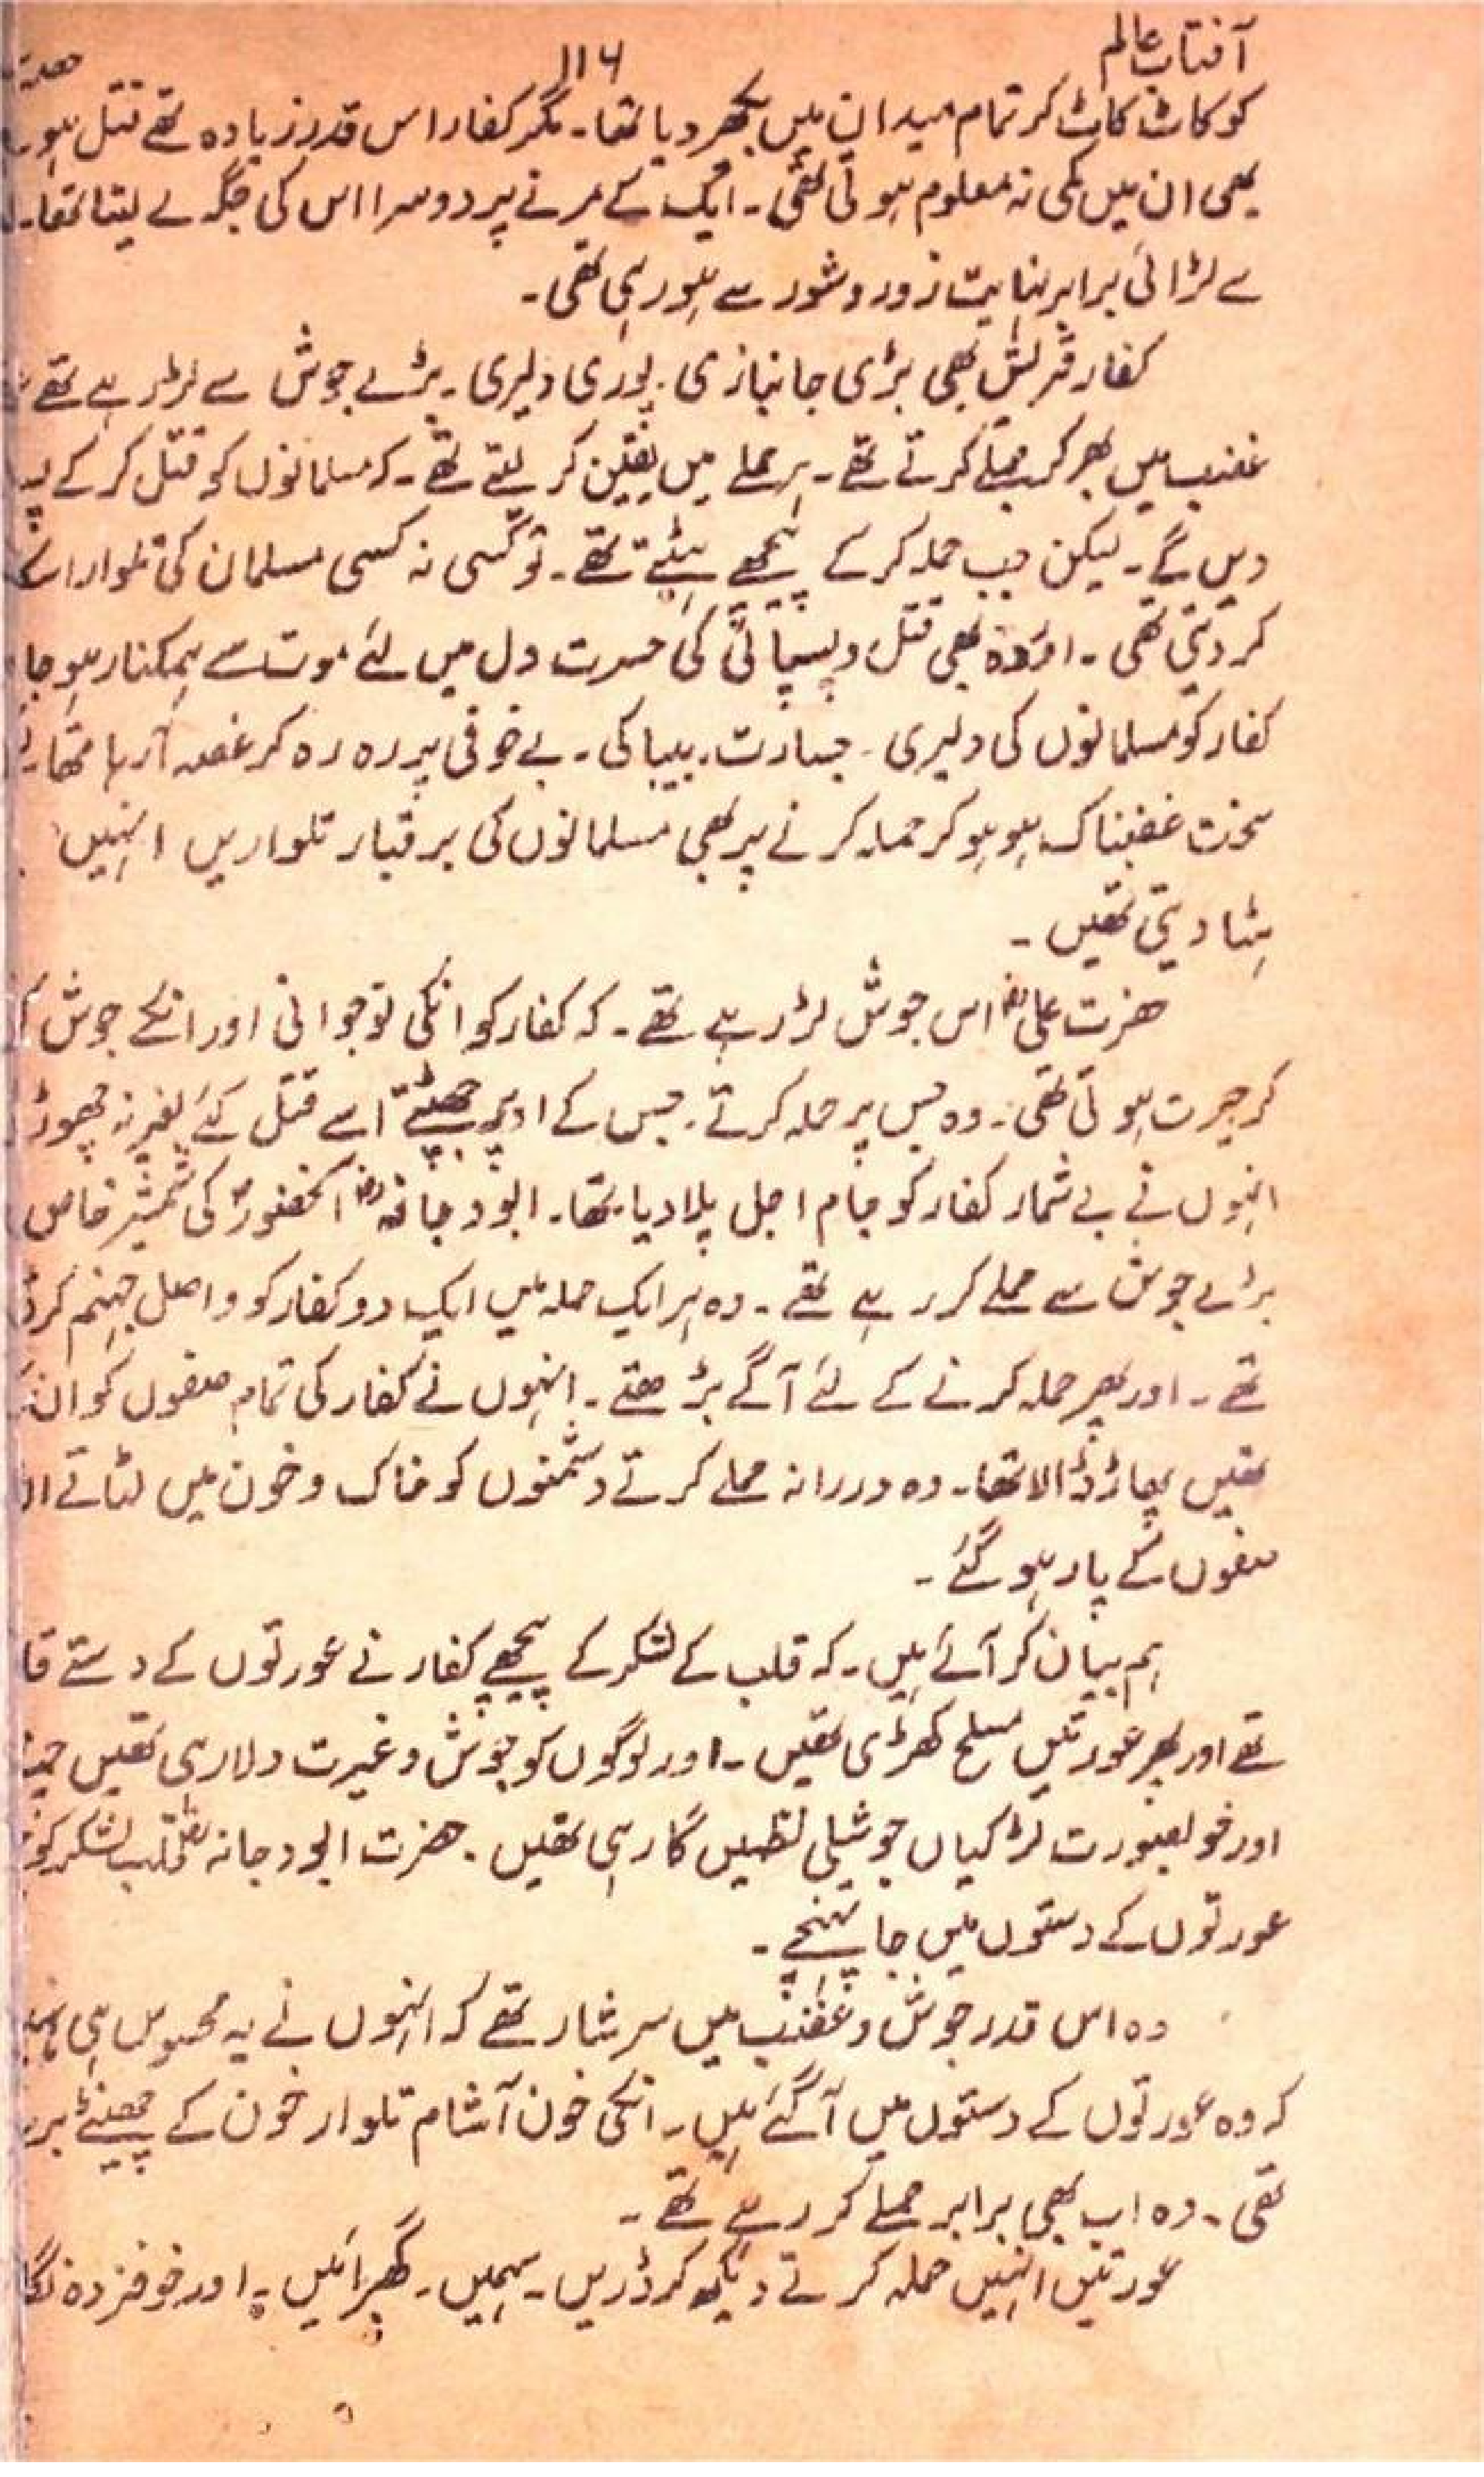 آفتاب عالم
۱۱۶
حصہ
کو کاٹ کاٹ کر تمام میدان میں بکھر دیا تھا۔ مگر کفار اس قدر زیادہ تھے قتل ہو
بھی ان میں کمی نہ معلوم ہوتی تھی۔ ایک کے مرنے پر دوسرا اس کی جگہ لے لیتا تھا۔
سے لڑائی برابر نہایت زور و شور سے ہو رہی تھی۔
کفار قریش بھی بڑی جانبازی۔ پوری دلیری۔ بڑے جوش سے لڑ رہے تھے
غضب میں بھر کر حملے کرتے تھے۔ ہر حملے میں یقین کر لیتے تھے۔ کہ مسلمانوں کو قتل کر کے
دیں گے۔ لیکن جب حملہ کر کے پیچھے ہٹتے تھے۔ تو کسی نہ کسی مسلمان کی تلوار
کر دیتی تھی۔ اور وہ بھی قتل و پسپائی کی حسرت دل میں لئے موت سے ہمکنار ہو جا
کفار کو مسلمانوں کی دلیری۔ جسارت۔ بیباکی۔ بے خوفی پر رہ رہ کر غصہ آ رہا تھا۔
سخت غضبناک ہو ہو کر حملہ کرنے پر بھی مسلمانوں کی برقبار تلواریں انہیں
ہٹا دیتی تھیں۔
حضرت علیؓ اس جوش لڑ رہے تھے۔ کہ کفار کو انکی نوجوانی اور انکے جوش
کر حیرت ہوتی تھی۔ وہ جس پر حملہ کرتے۔ جس کے اوپر جھپٹتے اسے قتل کئے بغیر نہ چھوڑ
انہوں نے بے شمار کفار کو جام اجل پلا دیا تھا۔ ابودجانہؓ آنحضورؐ کی شمشیر خاص
بڑے جوش سے حملے کر رہے تھے۔ وہ ہر ایک حملہ میں ایک دو کفار کو واصل جہنم کر
تھے۔ اور پھر حملہ کرنے کے لئے آگے بڑھتے۔ انہوں نے کفار کی تمام صفوں کو
تھیں پھاڑ ڈالا تھا۔ وہ دررانہ حملے کرتے دشمنوں کو خاک و خون میں لٹاتے
صفوں کے پار ہو گئے۔
ہم بیان کر آئے ہیں۔ کہ قلب کے لشکر کے پیچھے کفار نے عورتوں کے دستے
تھے اور پھر عورتیں مسلح کھڑی تھیں۔ اور لوگوں کو جوش و غیرت دلا رہی تھیں
اور خوبصورت لڑکیاں جوشیلی نظمیں گا رہی تھیں۔ حضرت ابودجانہؓ قلب لشکر کو
عورتوں کے دستوں میں جا پہنچے۔
وہ اس قدر جوش و غضب میں سرشار تھے کہ انہوں نے یہ محسوس ہی
کہ وہ عورتوں کے دستوں میں آ گئے ہیں۔ انکی خون آشام تلوار خون کے چھینٹے
تھی۔ وہ اب بھی برابر حملے کر رہے تھے۔
عورتیں انہیں حملہ کرتے دیکھ کر ڈریں۔ سہمیں۔ گھبرائیں۔ اور خوفزدہ